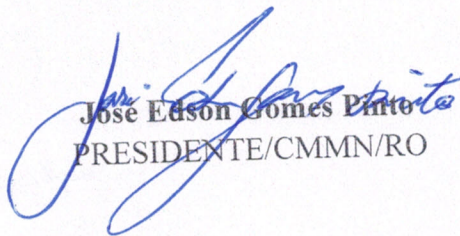 José Edson Gomes Pinto
PRESIDENTE/CMMN/RO